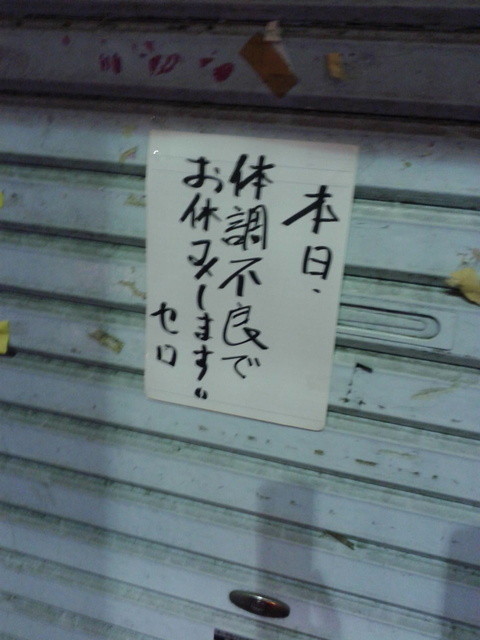 本日、
体調不良で
お休みします。
セロ